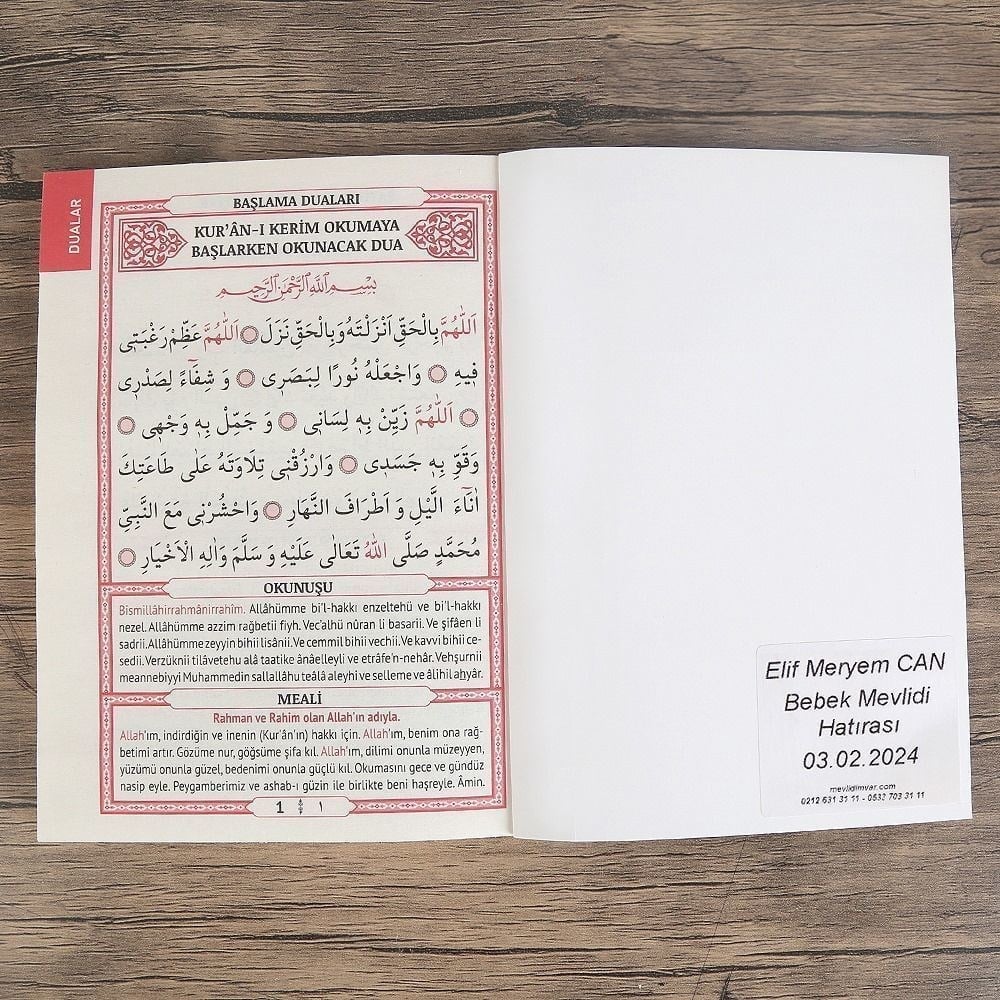 DUALAR
BAŞLAMA DUALARI
KUR'ÂN-I KERİM OKUMAYA
BAŞLARKEN OKUNACAK DUA
بِسْمِ اللّٰهِ الرَّحْمٰنِ الرَّحِيمِ
اَللّٰهُمَّ بِالْحَقِّ اَنْزَلْتَهُ وَبِالْحَقِّ نَزَلَ اَللّٰهُمَّ عَظِّمْ رَغْبَتٖى
فٖيهِ وَاجْعَلْهُ نُورًا لِبَصَرٖى وَ شِفَٓاءً لِصَدْرٖى
اَللّٰهُمَّ زَيِّنْ بِهٖ لِسَانٖى وَ جَمِّلْ بِهٖ وَجْهٖى
وَقَوِّ بِهٖ جَسَدٖى وَارْزُقْنٖى تِلَاوَتَهُ عَلٰى طَاعَتِكَ
اٰنَٓاءَ الَّيْلِ وَ اَطْرَافَ النَّهَارِ وَاحْشُرْنٖى مَعَ النَّبِىِّ
مُحَمَّدٍ صَلَّى اللّٰهُ تَعَالٰى عَلَيْهِ وَ سَلَّمَ وَاٰلِهِ الْاَخْيَارِ
OKUNUŞU
Bismillâhirrahmânirrahîm. Allâhümme bi'l-hakkı enzeltehü ve bi'l-hakkı
nezel. Allâhümme azzim rağbetii fiyh. Vec'alhü nûran li basarii. Ve şifâen li
sadrii. Allâhümme zeyyin bihii lisânii. Ve cemmil bihii vechii. Ve kavvi bihii ce-
sedii. Verzüknii tilâvetehu alâ taatike ânâelleyli ve etrâfe'n-nehâr. Vehşurnii
meannebiyyi Muhammedin sallallâhu teâlâ aleyhi ve selleme ve âlihil aḥyâr.
MEALİ
Rahman ve Rahim olan Allah'ın adıyla.
Allah'ım, indirdiğin ve inenin (Kur'ân'ın) hakkı için. Allah'ım, benim ona rağ-
betimi artır. Gözüme nur, göğsüme şifa kıl. Allah'ım, dilimi onunla müzeyyen,
yüzümü onunla güzel, bedenimi onunla güçlü kıl. Okumasını gece ve gündüz
nasip eyle. Peygamberimiz ve ashab-ı güzin ile birlikte beni haşreyle. Âmin.
1 ١
Elif Meryem CAN
Bebek Mevlidi
Hatırası
03.02.2024
mevlidimvar.com
0212 631 31 11 - 0532 703 31 11